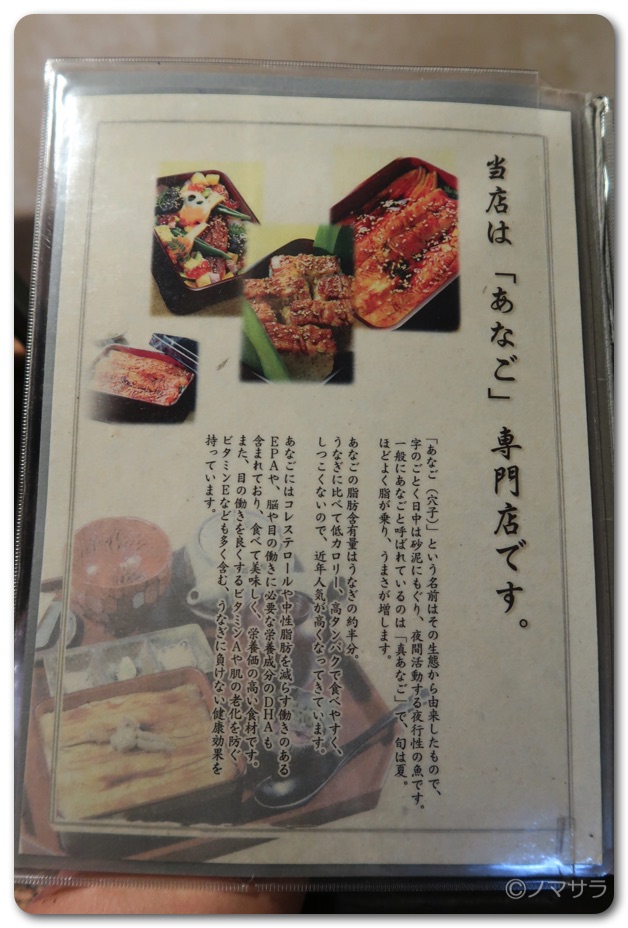 当店は「あなご」専門店です。
「あなご（穴子）」という名前はその生態から由来したもので、
字のごとく日中は砂泥にもぐり、夜間活動する夜行性の魚です。
一般にあなごと呼ばれているのは「真あなご」で、旬は夏。
ほどよく脂が乗り、うまさが増します。
あなごの脂肪含有量はうなぎの約半分。
うなぎに比べて低カロリー、高タンパクで食べやすく、
しつこくないので、近年人気が高くなってきています。
あなごにはコレステロールや中性脂肪を減らす働きのある
EPAや、脳や目の働きに必要な栄養成分のDHAも
含まれており、食べて美味しく、栄養価の高い食材です。
また、目の働きを良くするビタミンAや肌の老化を防ぐ
ビタミンEなども多く含む、うなぎに負けない健康効果を
持っています。
©ノマサラ